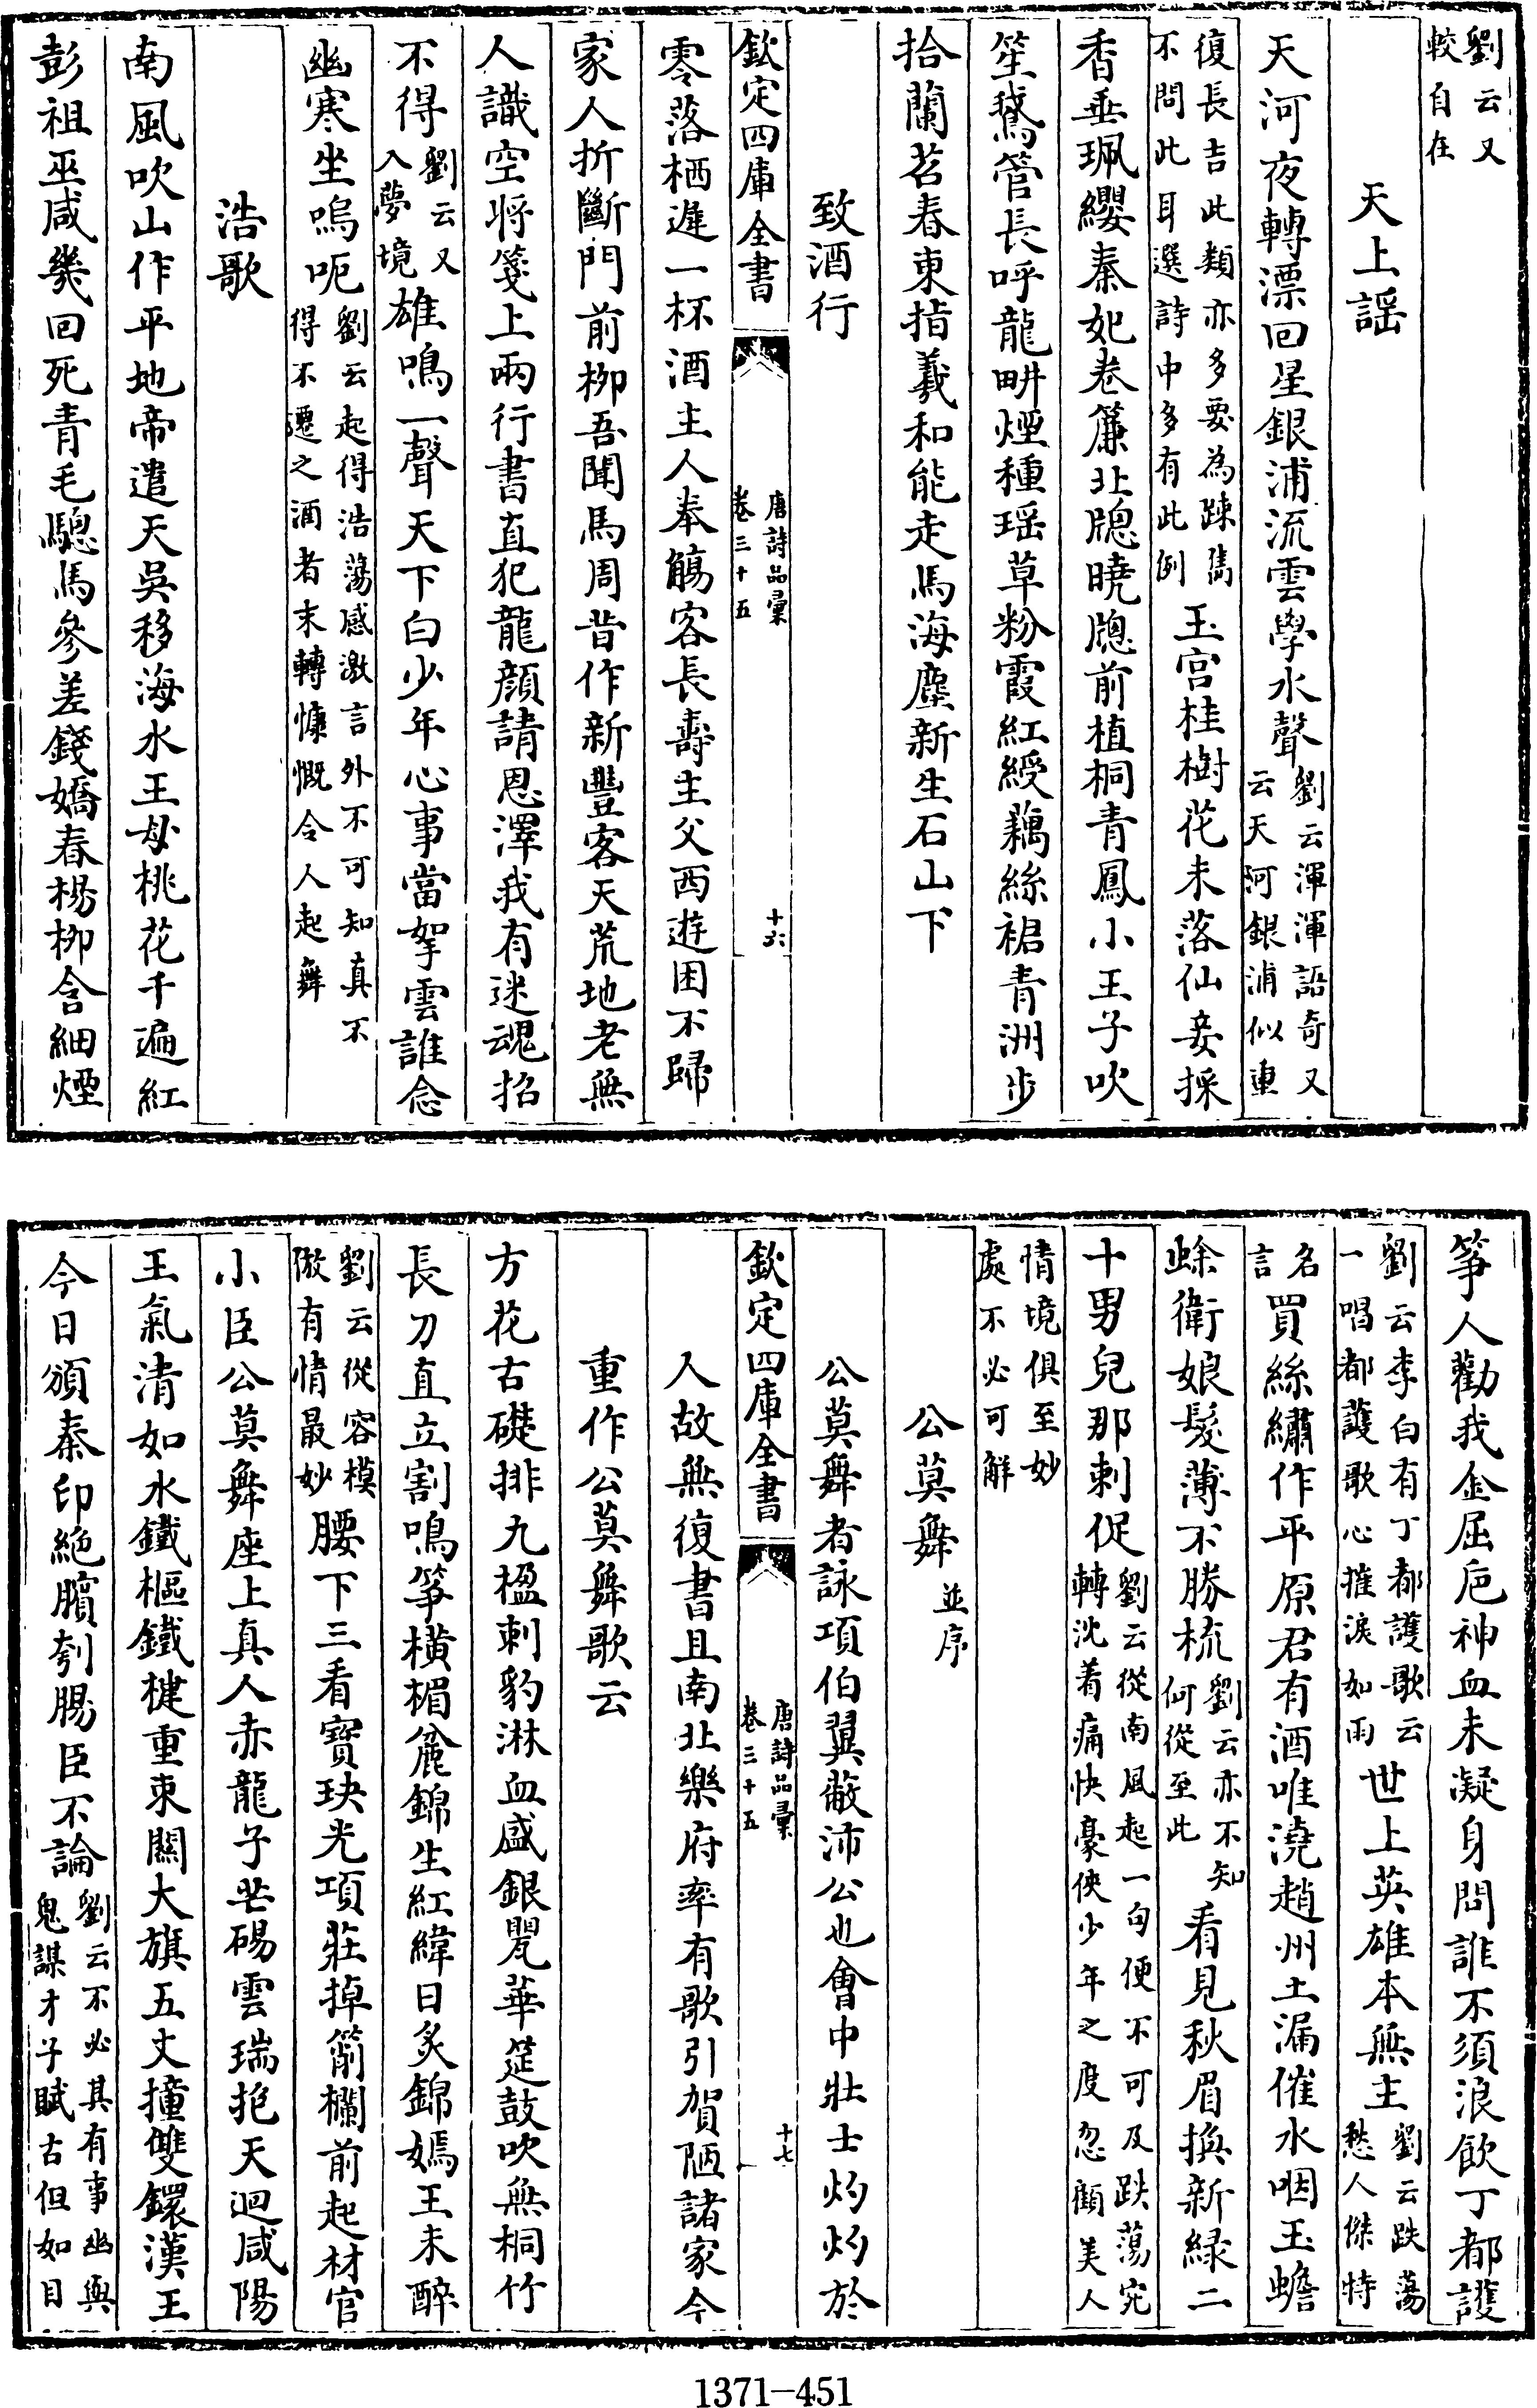 劉云又較自在
天上謡
天河夜轉漂回星銀浦流雲學水聲劉云渾渾語奇又云天河銀浦似重
復長吉此類亦多要為踈雋不問此耳選詩中多有此例玉宫桂樹花未落仙妾採
香垂珮纓秦妃卷簾北牎曉牎前植桐青鳳小王子吹
笙鵞管長呼龍畊煙種瑶草粉霞紅綬藕絲裙青洲步
拾蘭苕春東指羲和能走馬海塵新生石山下
致酒行
欽定四庫全書 唐詩品彙卷三十五 十六
零落栖遲一杯酒主人奉觴客長壽主父西遊困不歸
家人折斷門前柳吾聞馬周昔作新豐客天荒地老無
人識空将箋上兩行書直犯龍顔請恩澤我有迷魂招
不得劉云又入夢境雄鳴一聲天下白少年心事當拏雲誰念
幽寒坐嗚呃劉云起得浩蕩感激言外不可知真不得不遷之酒者末轉慷慨令人起舞
浩歌
南風吹山作平地帝遣天吳移海水王母桃花千遍紅
彭祖巫咸幾回死青毛驄馬參差錢嬌春楊柳含細煙
筝人勸我金屈巵神血未凝身問誰不須浪飲丁都護
劉云李白有丁都護歌云一唱都護歌心摧淚如雨世上英雄本無主劉云跌蕩愁人傑特
名言買絲繡作平原君有酒唯澆趙州土漏催水咽玉蟾
蜍衛娘髮薄不勝梳劉云亦不知何從至此看見秋眉換新緑二
十男兒那刺促劉云從南風起一句便不可及跌蕩宛轉沈着痛快豪俠少年之度忽顧美人
情境俱至妙處不必可解
公莫舞並序
公莫舞者詠項伯翼蔽沛公也會中壯士灼灼於
欽定四庫全書 唐詩品彙卷三十五 十七
人故無復書且南北樂府率有歌引賀陋諸家今
重作公莫舞歌云
方花古礎排九楹刺豹淋血盛銀甖華筵鼓吹無桐竹
長刀直立割鳴筝橫楣麄錦生紅緯日炙錦嫣王未醉
劉云從容模倣有情最妙腰下三看寶玦光項莊掉箾欄前起材官
小臣公莫舞座上真人赤龍子芒碭雲瑞抱天迴咸陽
王氣清如水鐵樞鐵楗重束關大旗五丈撞雙鐶漢王
今日頒秦印絶臏刳腸臣不論劉云不必其有事幽與鬼謀才子賦古但如目
1371-451